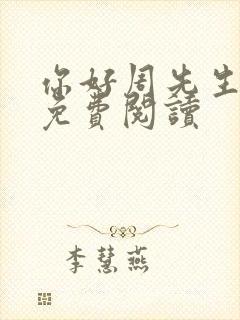 你好周先生
免費閱讀
李慧燕